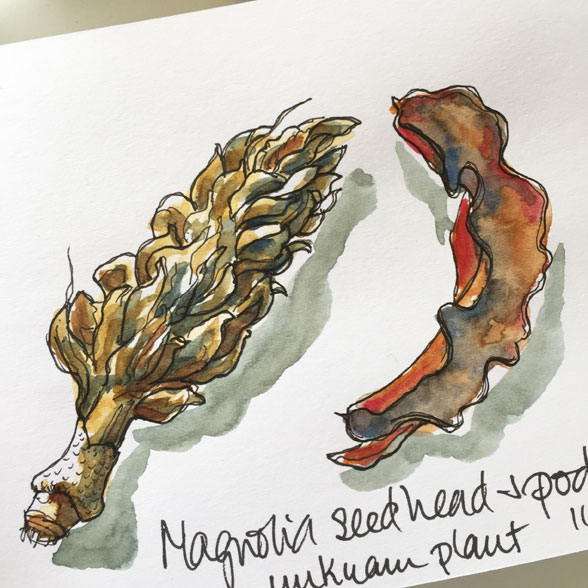 Magnolia seedhead + pod
unknown plant 11